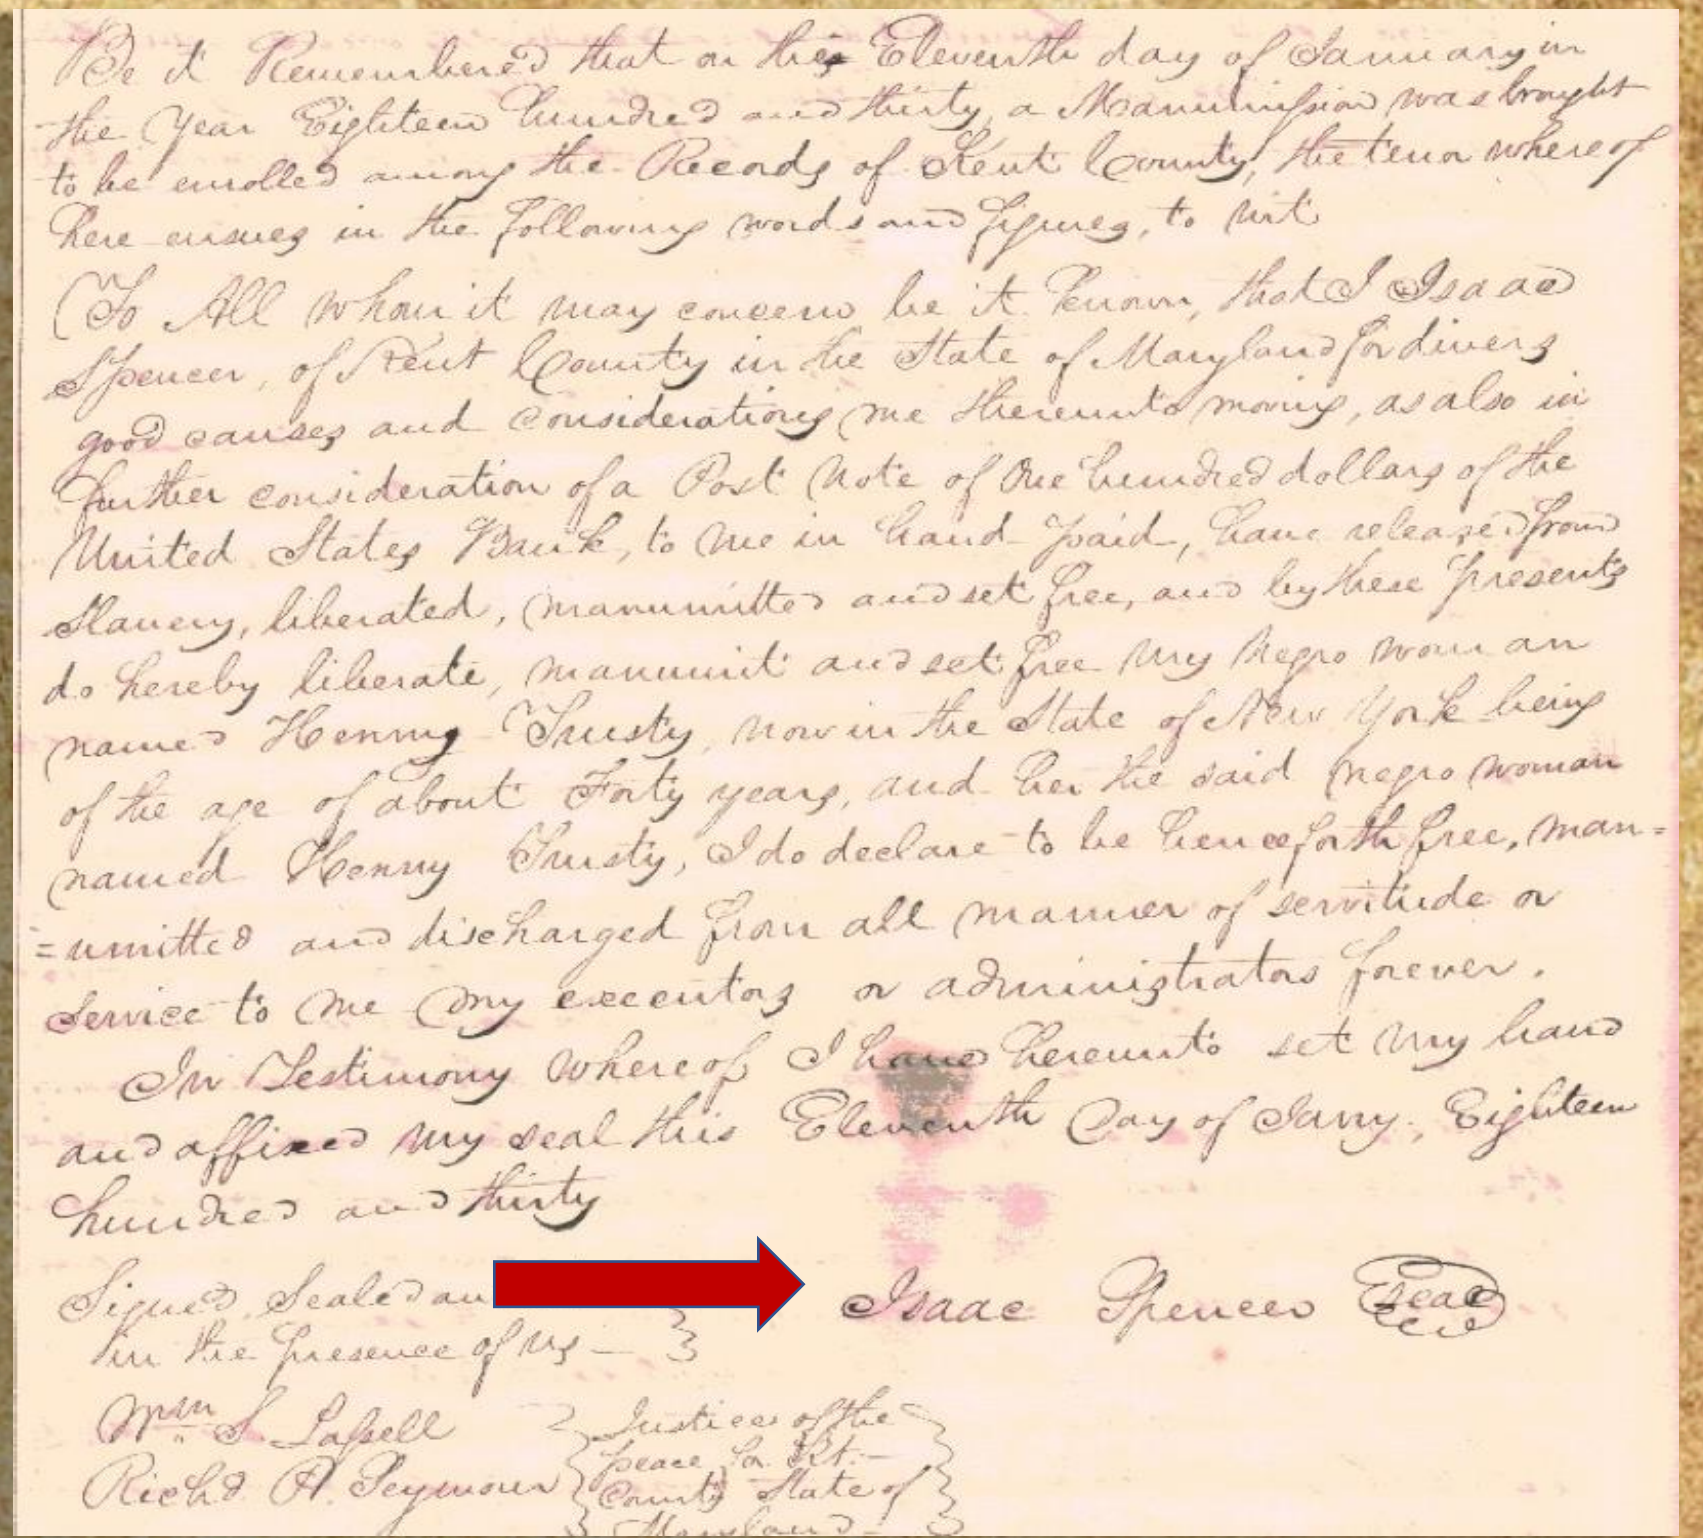 Be it Remembered that on this Eleventh day of January in
the Year Eighteen hundred and thirty, a Manumission was brought
to be enrolled among the Records of Kent County, the tenor whereof
here ensues in the following words and figures, to wit
To All whom it may concern be it known, that I Isaac
Spencer, of Kent County in the State of Maryland for divers
good causes and considerations me thereunto moving, as also in
further consideration of a Post Note of One hundred dollars of the
United States Bank, to me in hand paid, have released from
Slavery, liberated, manumitted and set free, and by these presents
do hereby liberate, manumit and set free my negro woman
named Henny Trusty, now in the State of New York being
of the age of about Forty years, and her the said negro woman
named Henny Trusty, I do declare to be henceforth free, man=
=umitted and discharged from all manner of servitude or
service to me my executors or administrators forever.
In Testimony whereof I have hereunto set my hand
and affixed my seal this Eleventh Day of Jany., Eighteen
hundred and thirty
Signed, Sealed an Isaac Spencer Seal
in the presence of us
Wm. S. Lassell Justices of the
peace for Kt.
Richd A. Seymour County State of
Maryland